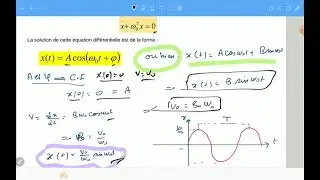 ẍ + ω₀²x = 0
La solution de cette équation différentielle est de la forme :
x(t) = A cos(ω₀t + φ)
ou bien x(t) = A cos ω₀t + B sin ω₀t
A et φ ⟹ C.I x(0) = 0 V = V₀
x(0) = 0 = A
⟹ x(t) = B sin ω₀t
V = dx/dt = Bω₀ cos ω₀t
⟹ V₀ = B ω₀
⟹ B = V₀/ω₀
x(t) = V₀/ω₀ sin ω₀t
x
T
t